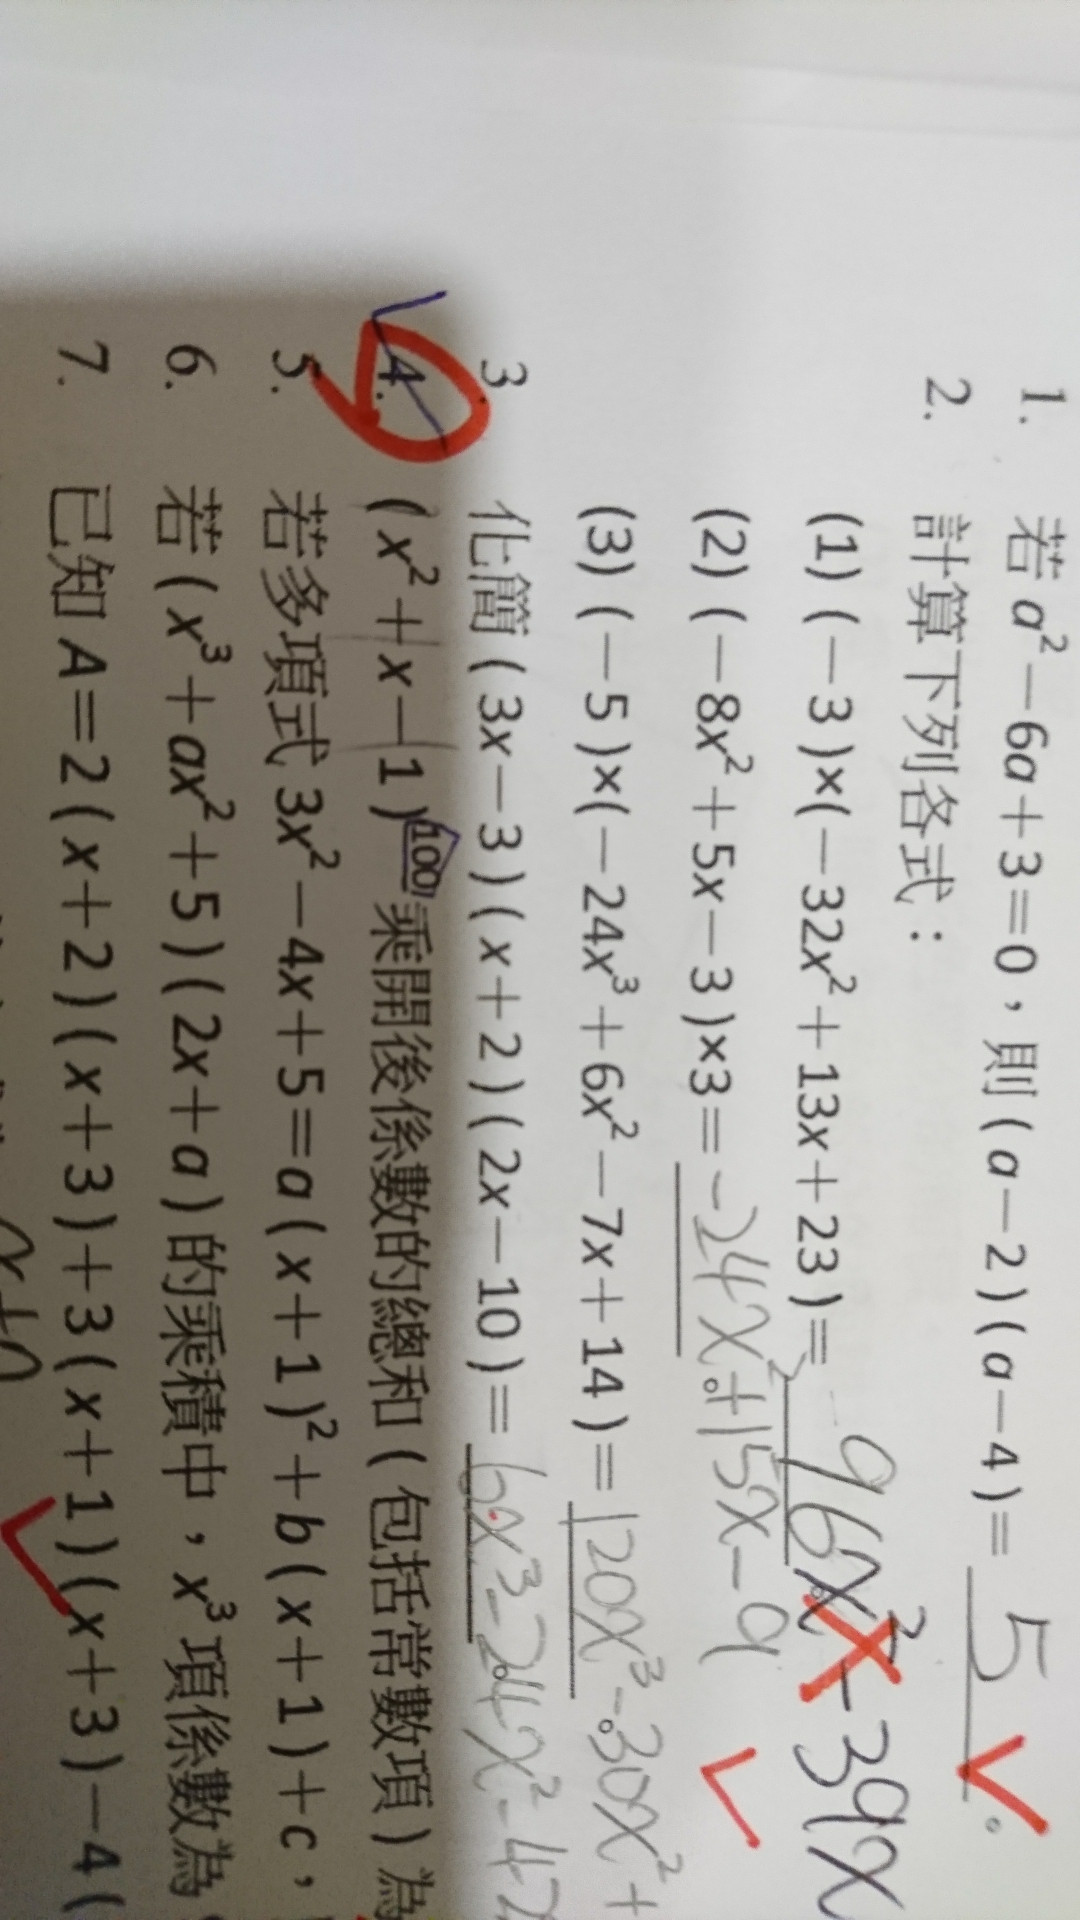 1. 若 a²－6a＋3＝0，則(a－2)(a－4)＝ 5 。
2. 計算下列各式：
(1) (－3)×(－32x²＋13x＋23)＝ 96x²－39x
(2) (－8x²＋5x－3)×3＝ －24x²＋15x－9
(3) (－5)×(－24x³＋6x²－7x＋14)＝ 120x³－30x²＋
3. 化簡(3x－3)(x＋2)(2x－10)＝ 6x³－24x²－42
4. (x²＋x－1)¹⁰⁰乘開後係數的總和(包括常數項)為
5. 若多項式 3x²－4x＋5＝a(x＋1)²＋b(x＋1)＋c，
6. 若(x³＋ax²＋5)(2x＋a)的乘積中，x³項係數為
7. 已知 A＝2(x＋2)(x＋3)＋3(x＋1)(x＋3)－4(